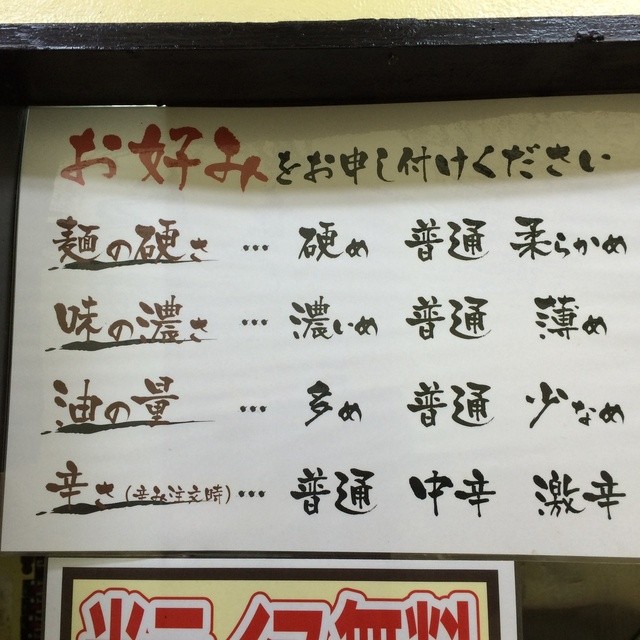 お好みをお申し付けください
麺の硬さ … 硬め 普通 柔らかめ
味の濃さ … 濃いめ 普通 薄め
油の量 … 多め 普通 少なめ
辛さ(辛み注文時)… 普通 中辛 激辛
半ライス無料